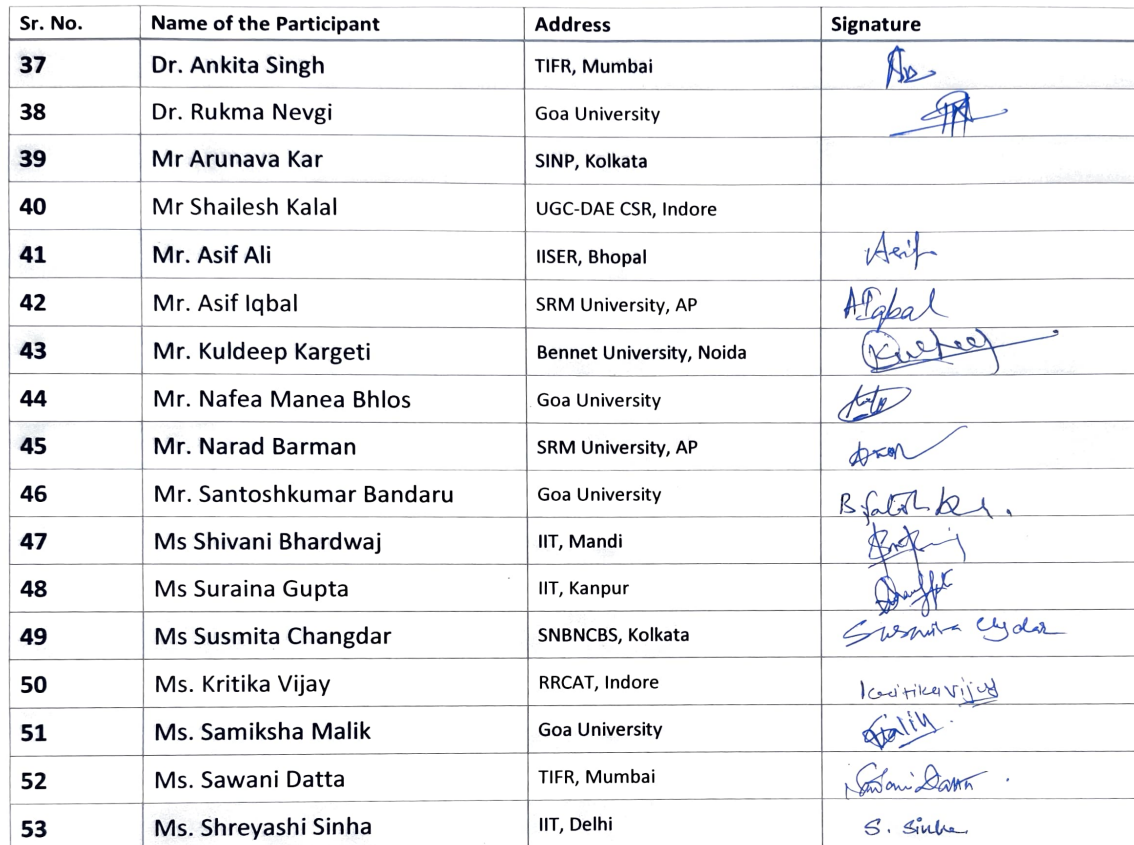 Sr. No. Name of the Participant Address Signature
37 Dr. Ankita Singh TIFR, Mumbai
38 Dr. Rukma Nevgi Goa University
39 Mr Arunava Kar SINP, Kolkata
40 Mr Shailesh Kalal UGC-DAE CSR, Indore
41 Mr. Asif Ali IISER, Bhopal Asif
42 Mr. Asif Iqbal SRM University, AP A Iqbal
43 Mr. Kuldeep Kargeti Bennet University, Noida Kuldeep
44 Mr. Nafea Manea Bhlos Goa University
45 Mr. Narad Barman SRM University, AP
46 Mr. Santoshkumar Bandaru Goa University
47 Ms Shivani Bhardwaj IIT, Mandi
48 Ms Suraina Gupta IIT, Kanpur
49 Ms Susmita Changdar SNBNCBS, Kolkata Susmita
50 Ms. Kritika Vijay RRCAT, Indore Kritika Vijay
51 Ms. Samiksha Malik Goa University
52 Ms. Sawani Datta TIFR, Mumbai Sawani Datta
53 Ms. Shreyashi Sinha IIT, Delhi S. Sinha